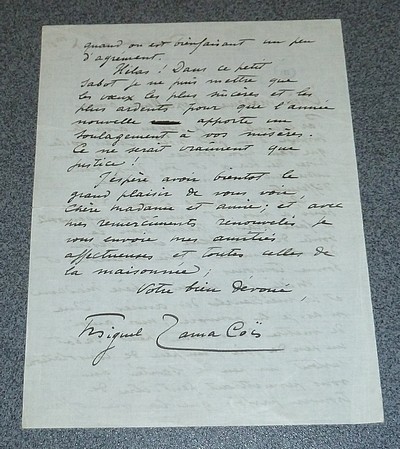 quand on est bienfaisant un peu
d'agrément.
Hélas ! Dans ce petit
sabot je ne puis mettre que
les vœux les plus sincères et les
plus ardents pour que l'année
nouvelle apporte un
soulagement à vos misères.
Ce ne serait vraiment que
justice !
J'espère avoir bientôt le
grand plaisir de vous voir,
chère madame et amie ; et avec
mes remerciements renouvelés je
vous envoie mes amitiés
affectueuses et toutes celles de
la maisonnée,
Votre bien dévoué,
Miguel Zamacoïs